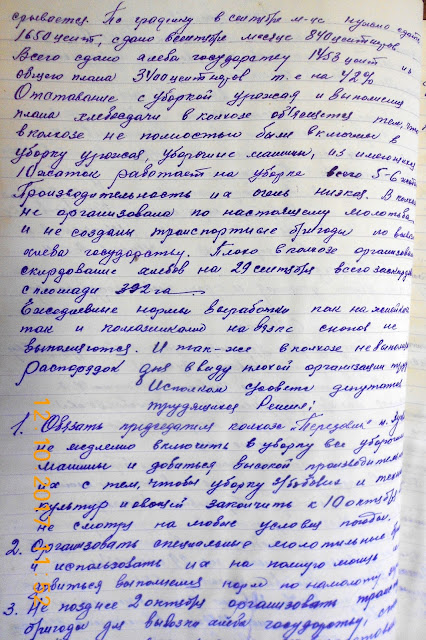 сдывается. По графику в сентябре м-це нужно сдать
1650 цент, сдано в сентябре месяце 840 центнеров
Всего сдано хлеба государству 1453 цент из
общего плана 3400 центнеров т. е на 42%
Отставание с уборкой урожая и выполнения
плана хлебосдачи в колхозе об'ясняется тем, что
в колхозе не полностью были включены в
уборку урожая, уборочные машины, из имеющихся
10 жаток работает на уборке всего 5-6 жаток
Производительность их очень низкая. В колхозе
не организована по настоящему молотьба
и не созданы транспортные бригады по вывозке
хлеба государству. Плохо в колхозе организовано
скирдование хлебов на 29 сентября всего заскирдовано
с площади 392 га.
Ежедневные нормы выработки как на жнейках
так и на вязке снопов не
выполняются. И так-же в колхозе не выполняется
распорядок дня ввиду плохой организации труда
Исполком совета депутатов
трудящихся Решил:
1. Обязать председателя колхоза "Перелом" т.
не медленно включить в уборку все уборочные
машины и добиться высокой производительности
их с тем, чтобы уборку зерновых и технических
культур и овощей закончить к 10 октября
не смотря на любые условия погоды.
2. Организовать специальные молотильные
и использовать их на полную мощь и
добиться выполнения норм по намолоту
3. Не позднее 2 октября организовать транспортные
бригады для вывозки хлеба государству,
12.10.2017 11:52